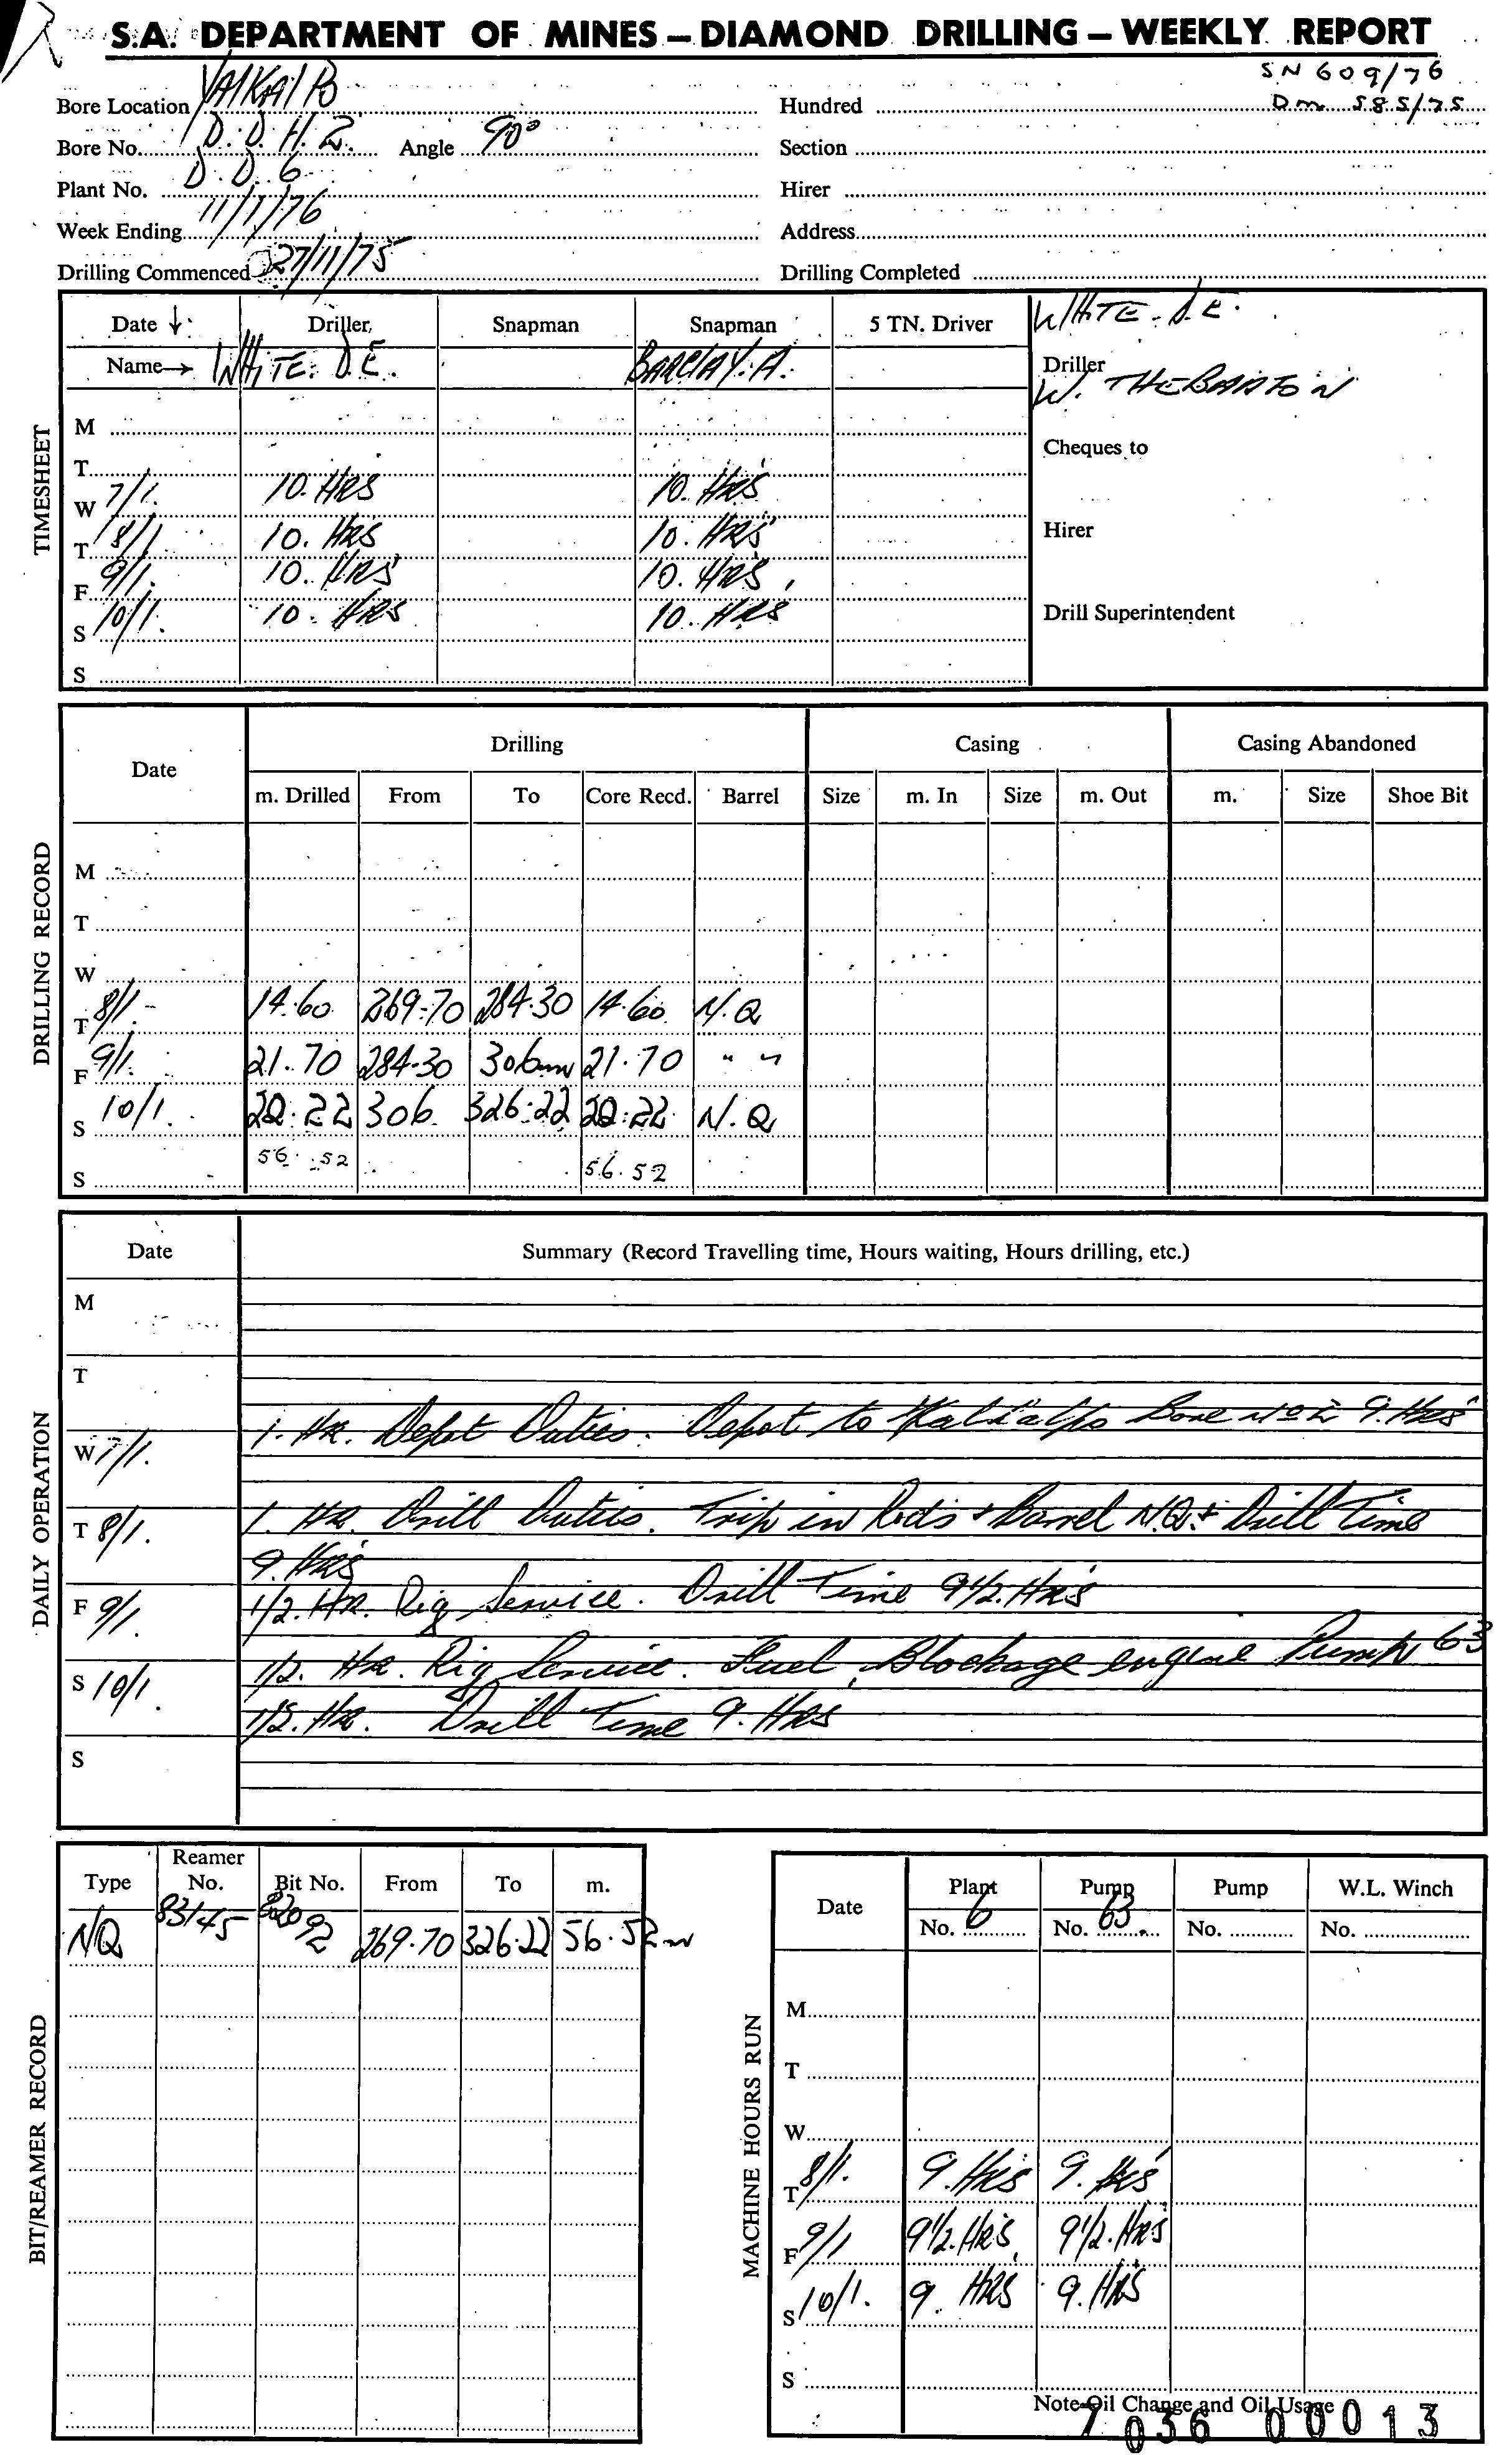 S.A. DEPARTMENT OF MINES – DIAMOND DRILLING – WEEKLY REPORT
SN 609/76
Bore Location Hundred Dm 585/75
Bore No. D.D.H.2. Angle 90° Section
Plant No. D.D.6 Hirer
Week Ending 11/1/76 Address
Drilling Commenced 27/11/75 Drilling Completed
TIMESHEET
Date ↓ Driller Snapman Snapman 5 TN. Driver WHITE. D.E.
Name→ WHITE. D.E. BARCLAY. A. Driller
W. THEBARTON
M
Cheques to
T
W 7/1. 10. HRS 10. HRS
T 8/1 10. HRS 10. HRS Hirer
F 9/1. 10. HRS 10. HRS
S 10/1. 10. HRS 10. HRS Drill Superintendent
S
DRILLING RECORD
Date Drilling Casing Casing Abandoned
m. Drilled From To Core Recd. Barrel Size m. In Size m. Out m. Size Shoe Bit
M
T
W
T 8/1 14.60 269.70 284.30 14.60 N.Q
F 9/1. 21.70 284.30 306m 21.70 " "
S 10/1. 20.22 306. 326.22 20.22 N.Q
S 56.52 56.52
DAILY OPERATION
Date Summary (Record Travelling time, Hours waiting, Hours drilling, etc.)
M
T
W 7/1. 1. HR. Depot Duties. Depot to Bore No 2 9. HRS
T 8/1. 1. HR. Drill Duties. Trip in Rods + Barrel N.Q. + Drill Time
9. HRS
F 9/1. 1/2. HR. Rig Service. Drill Time 9 1/2. HRS
S 10/1. 1/2. HR. Rig Service. Fuel Blockage engine Pump 63
1/2. HR. Drill Time 9. HRS
S
BIT/REAMER RECORD
Type Reamer No. Bit No. From To m.
NQ 83145 82092 269.70 326.22 56.52m
MACHINE HOURS RUN
Date Plant Pump Pump W.L. Winch
No. 6 No. 63 No. No.
M
T
W
T 8/1. 9. HRS 9. HRS
F 9/1 9 1/2. HRS 9 1/2. HRS
S 10/1. 9. HRS 9. HRS
S
Note Oil Change and Oil Usage
7 036 00013